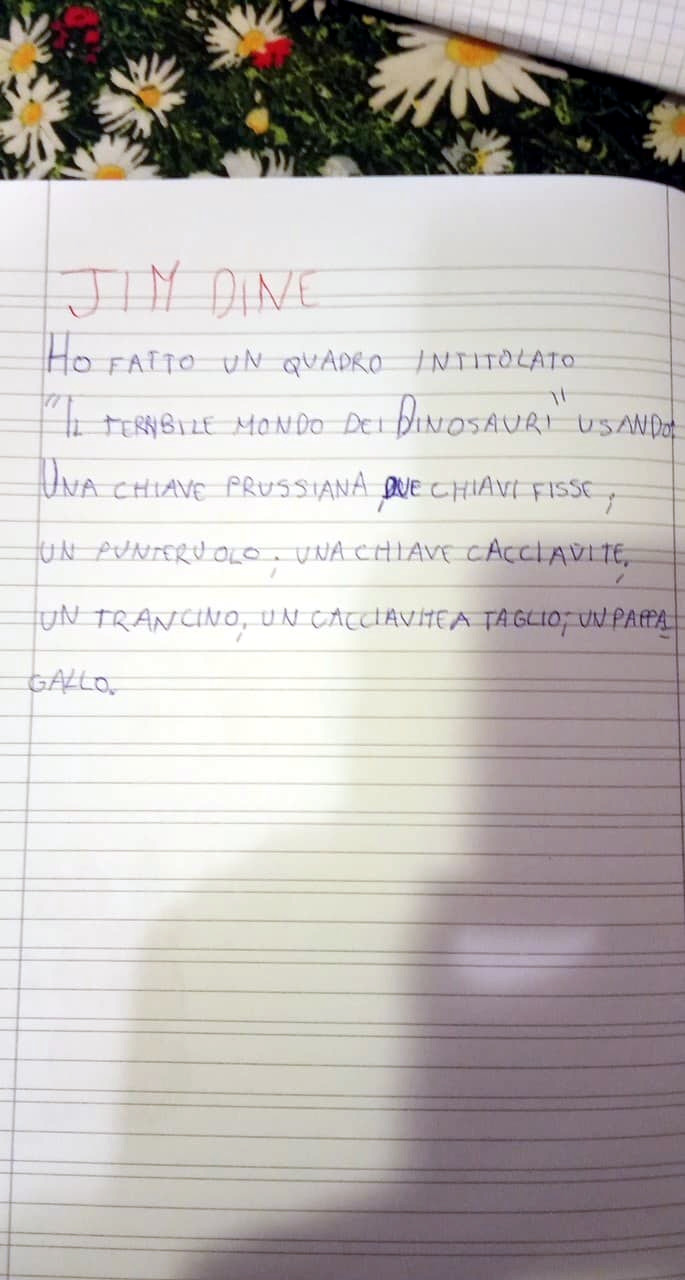 JIM DINE
HO FATTO UN QUADRO INTITOLATO
"IL TERRIBILE MONDO DEI DINOSAURI" USANDO:
UNA CHIAVE PRUSSIANA, DUE CHIAVI FISSE,
UN PUNTERUOLO, UNA CHIAVE CACCIAVITE,
UN TRANCINO, UN CACCIAVITE A TAGLIO, UN PAPPA
GALLO.